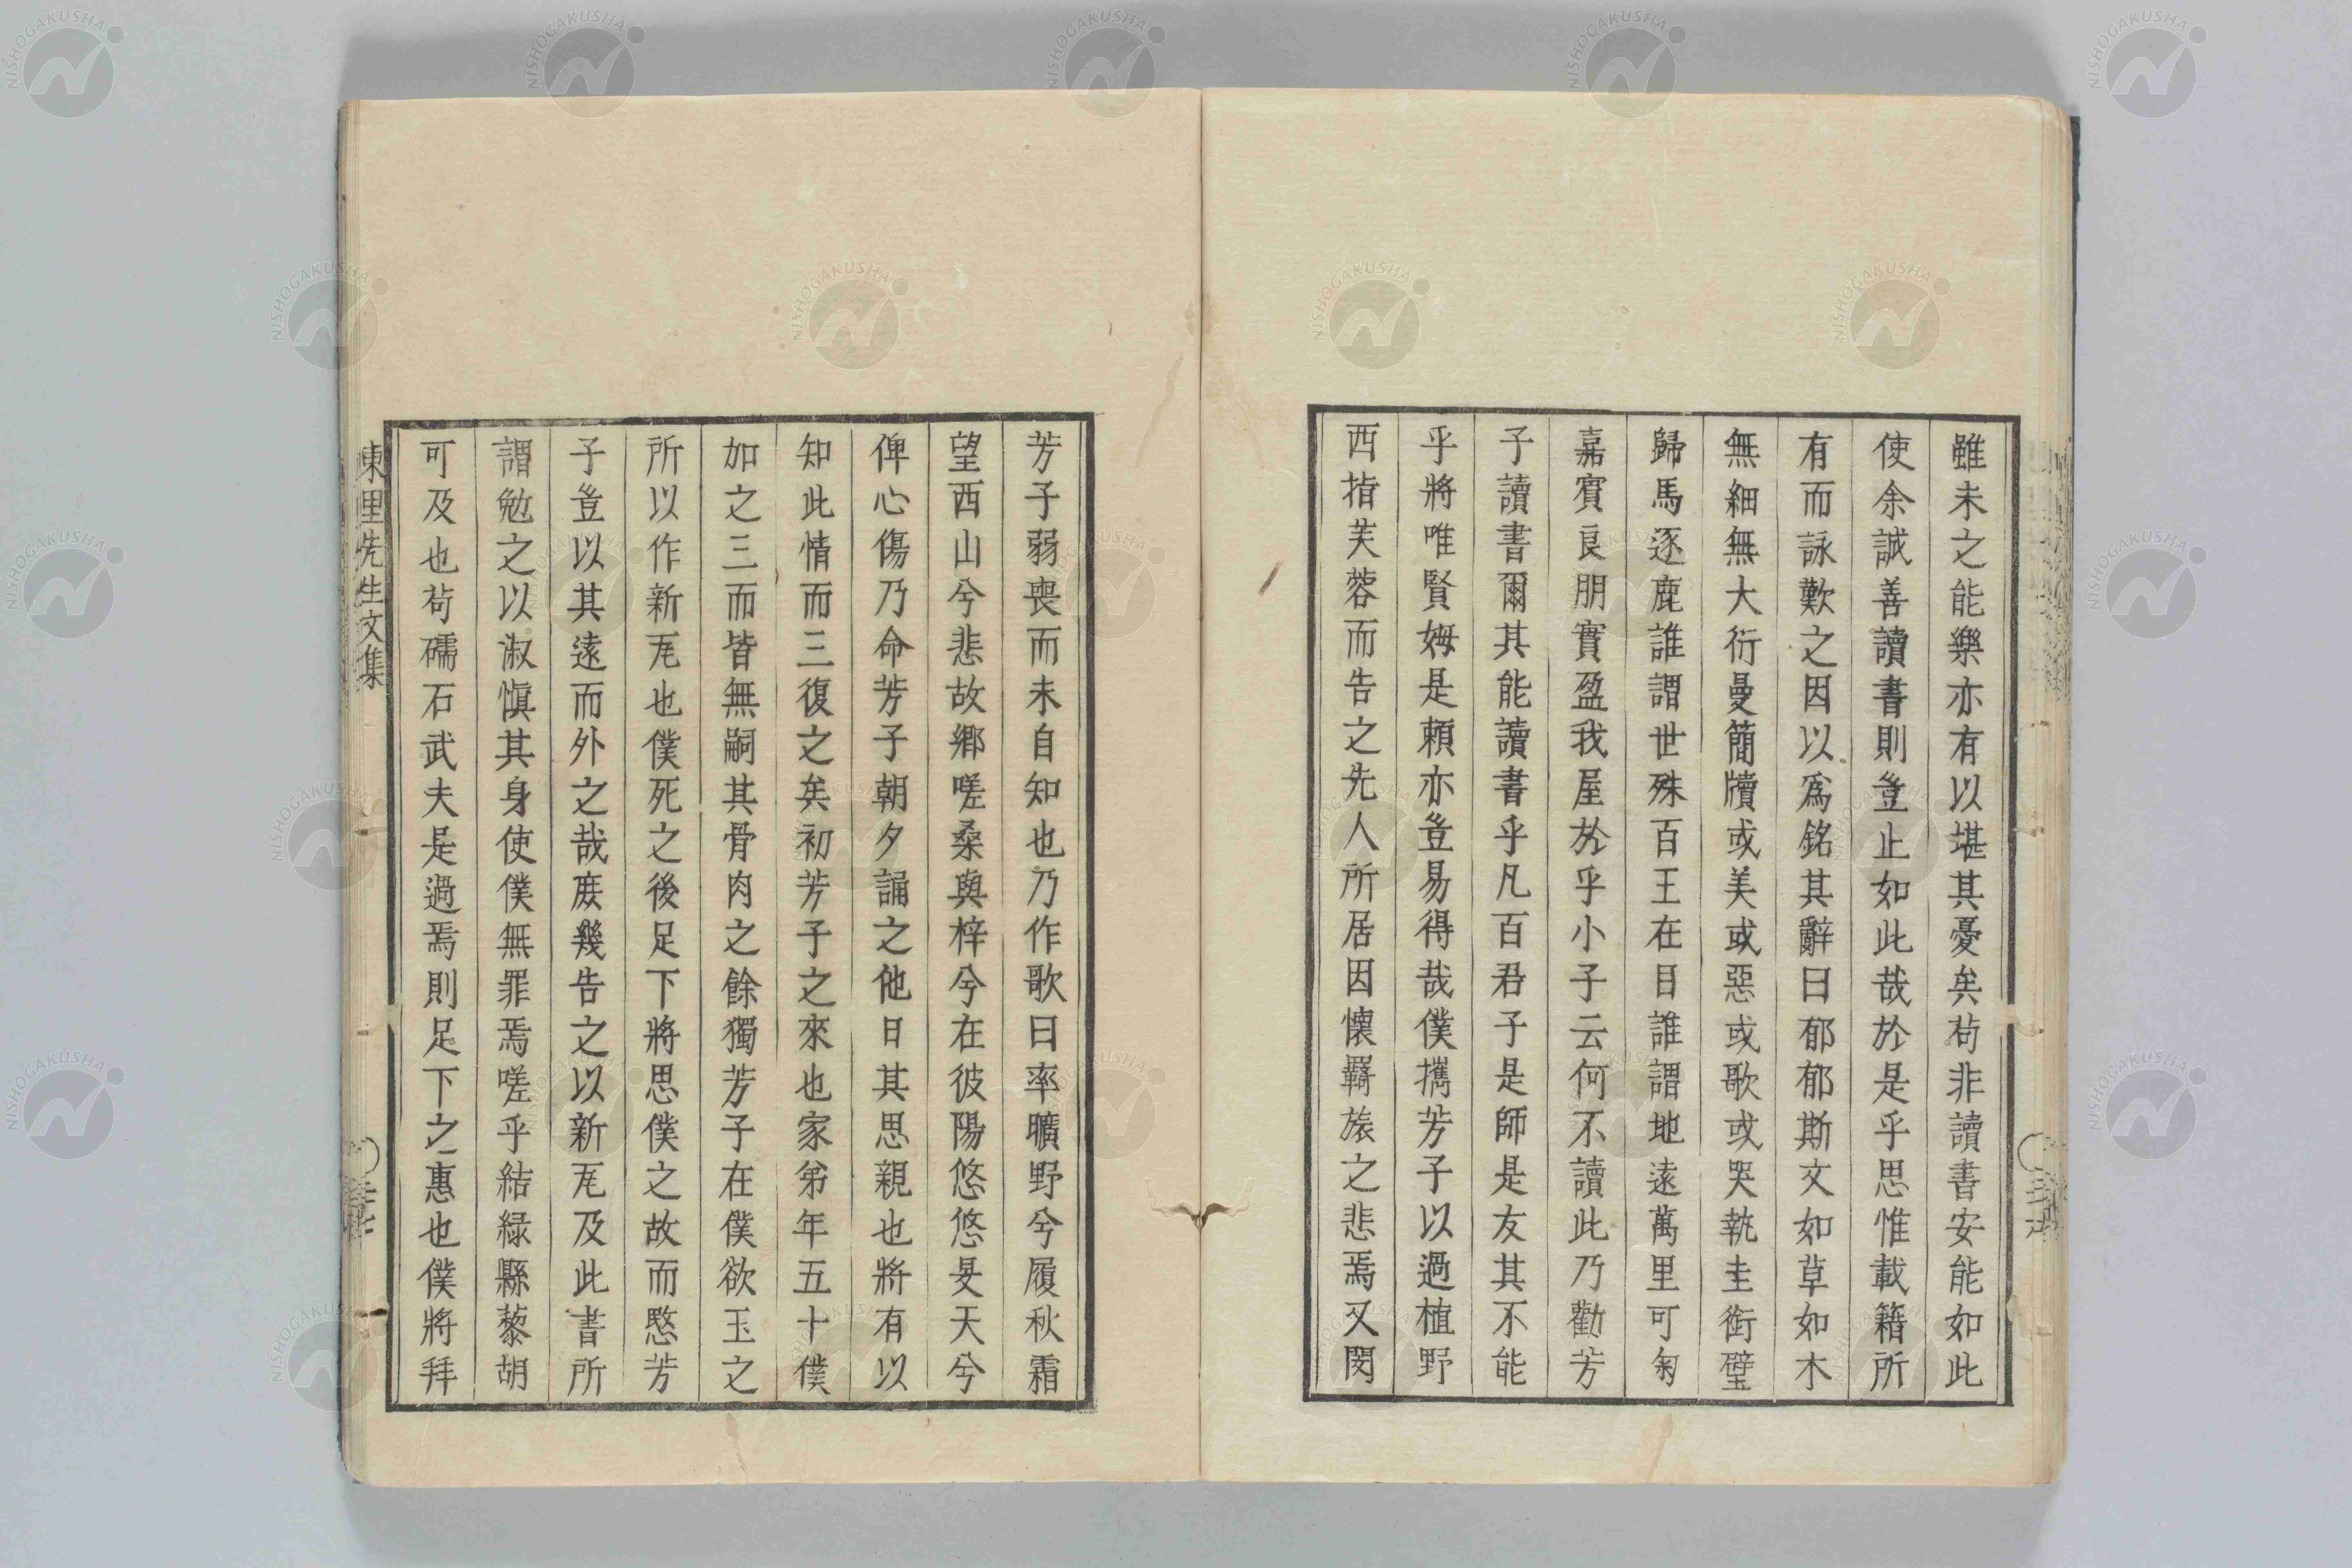 雖未之能樂亦有以堪其憂矣苟非讀書安能如此
使余誠善讀書則豈止如此哉於是乎思惟載籍所
有而詠歎之因以爲銘其辭曰郁郁斯文如草如木
無細無大衍曼簡牘或美或惡或歌或哭執圭銜璧
歸馬逐鹿誰謂世殊百王在目誰謂地遠萬里可匊
嘉賓良朋實盈我屋於乎小子云何不讀此乃勸芳
子讀書爾其能讀書乎凡百君子是師是友其不能
乎將唯賢姆是賴亦豈易得哉僕攜芳子以過植野
西指芙蓉而告之先人所居因懷羇旅之悲焉又閔
芳子弱喪而未自知也乃作歌曰率曠野兮履秋霜
望西山兮悲故鄉嗟桑與梓兮在彼陽悠悠旻天兮
俾心傷乃命芳子朝夕誦之他日其思親也將有以
知此情而三復之矣初芳子之來也家弟年五十僕
如之三而皆無嗣其骨肉之餘獨芳子在僕欲玉之
所以作新㐬也僕死之後足下將思僕之故而愍芳
子豈以其遠而外之哉庶幾告之以新㐬及此書所
謂勉之以淑愼其身使僕無罪焉嗟乎結緑縣藜胡
可及也苟礝石武夫是過焉則足下之惠也僕將拜
東里先生文集
NISHOGAKUSHA